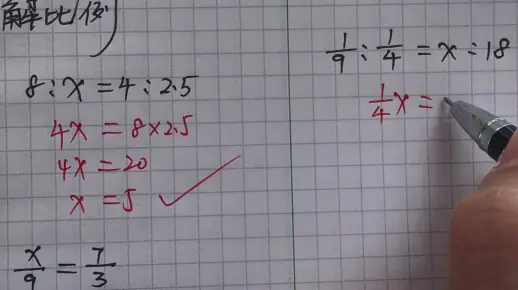 解比例
8:x=4:2.5
4x=8×2.5
4x=20
x=5
x/9=7/3
1/9:1/4=x:18
1/4x=